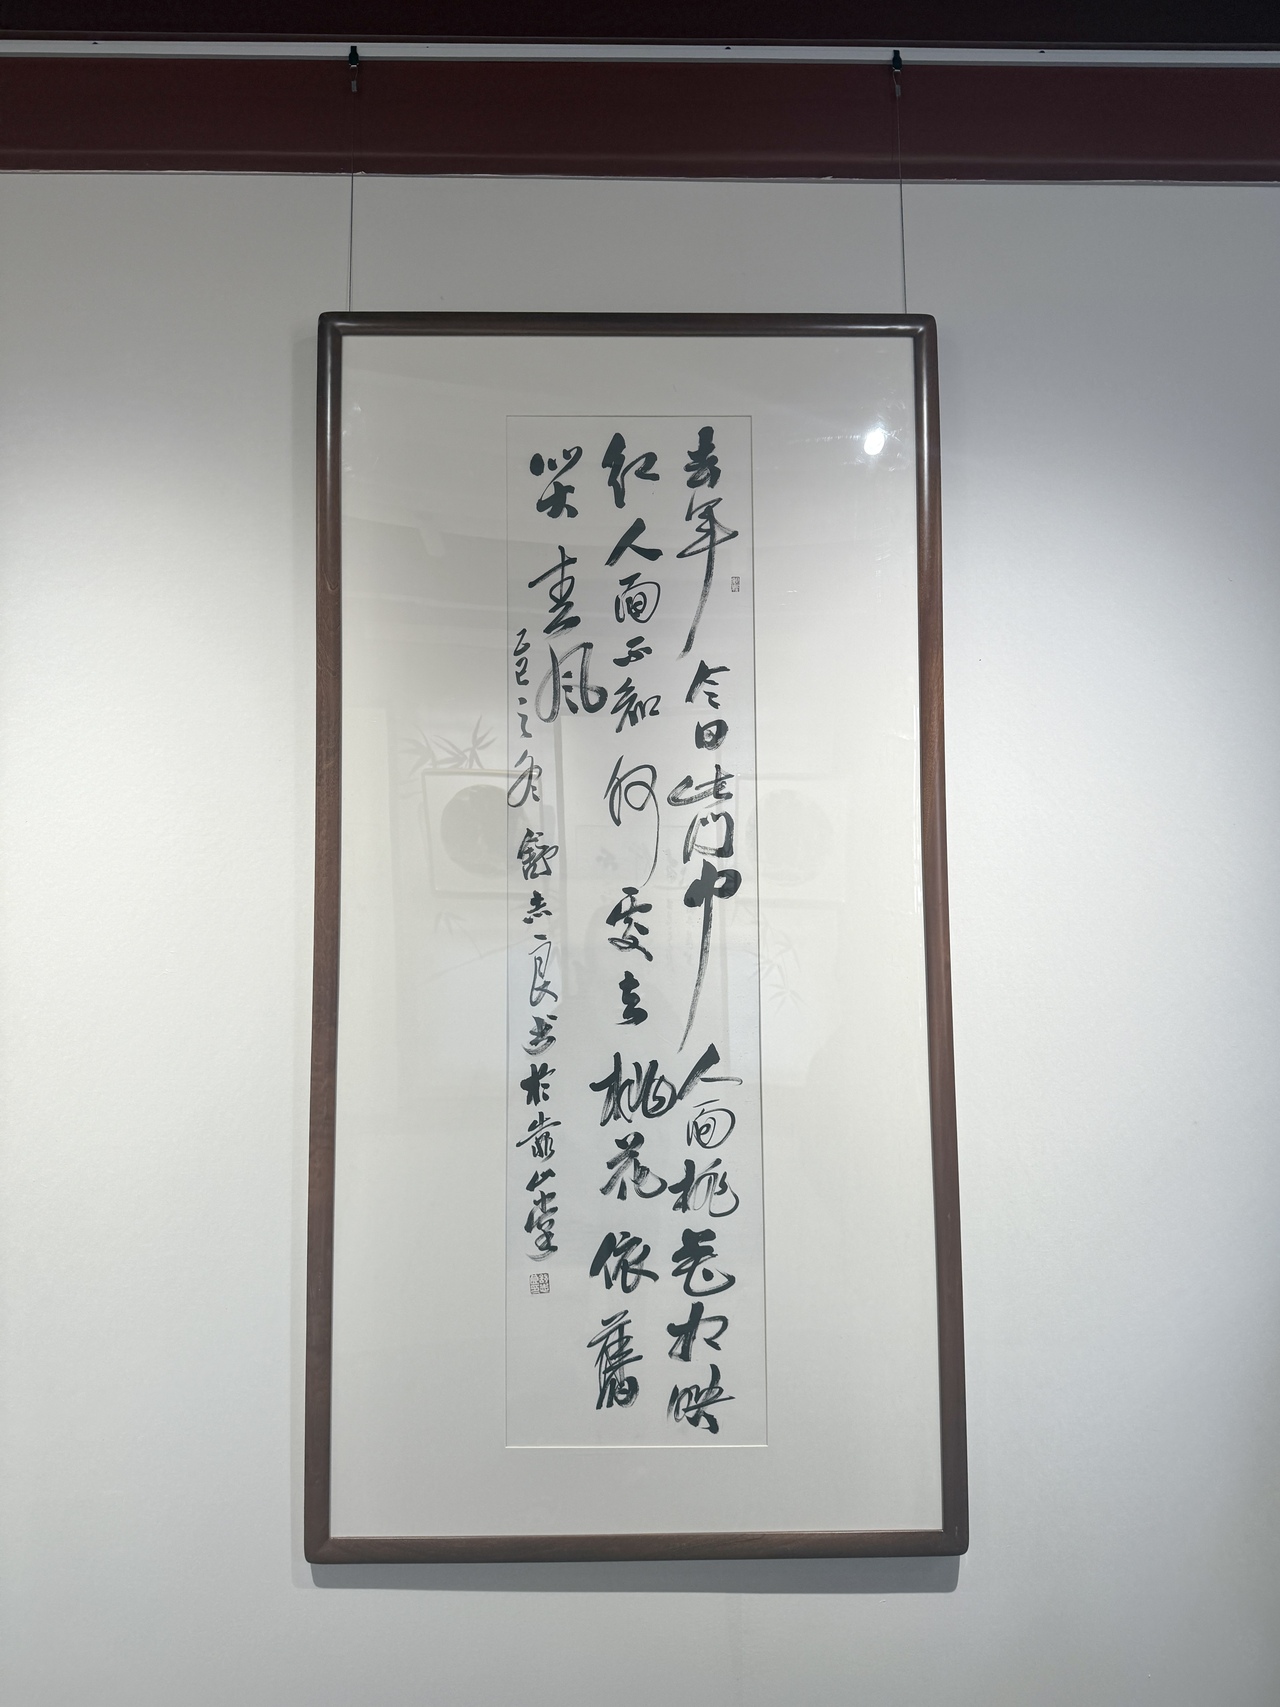 去年今日此门中人面桃花相映
红人面不知何处去桃花依舊
笑春风
乙巳之冬舒志良书於靠山堂